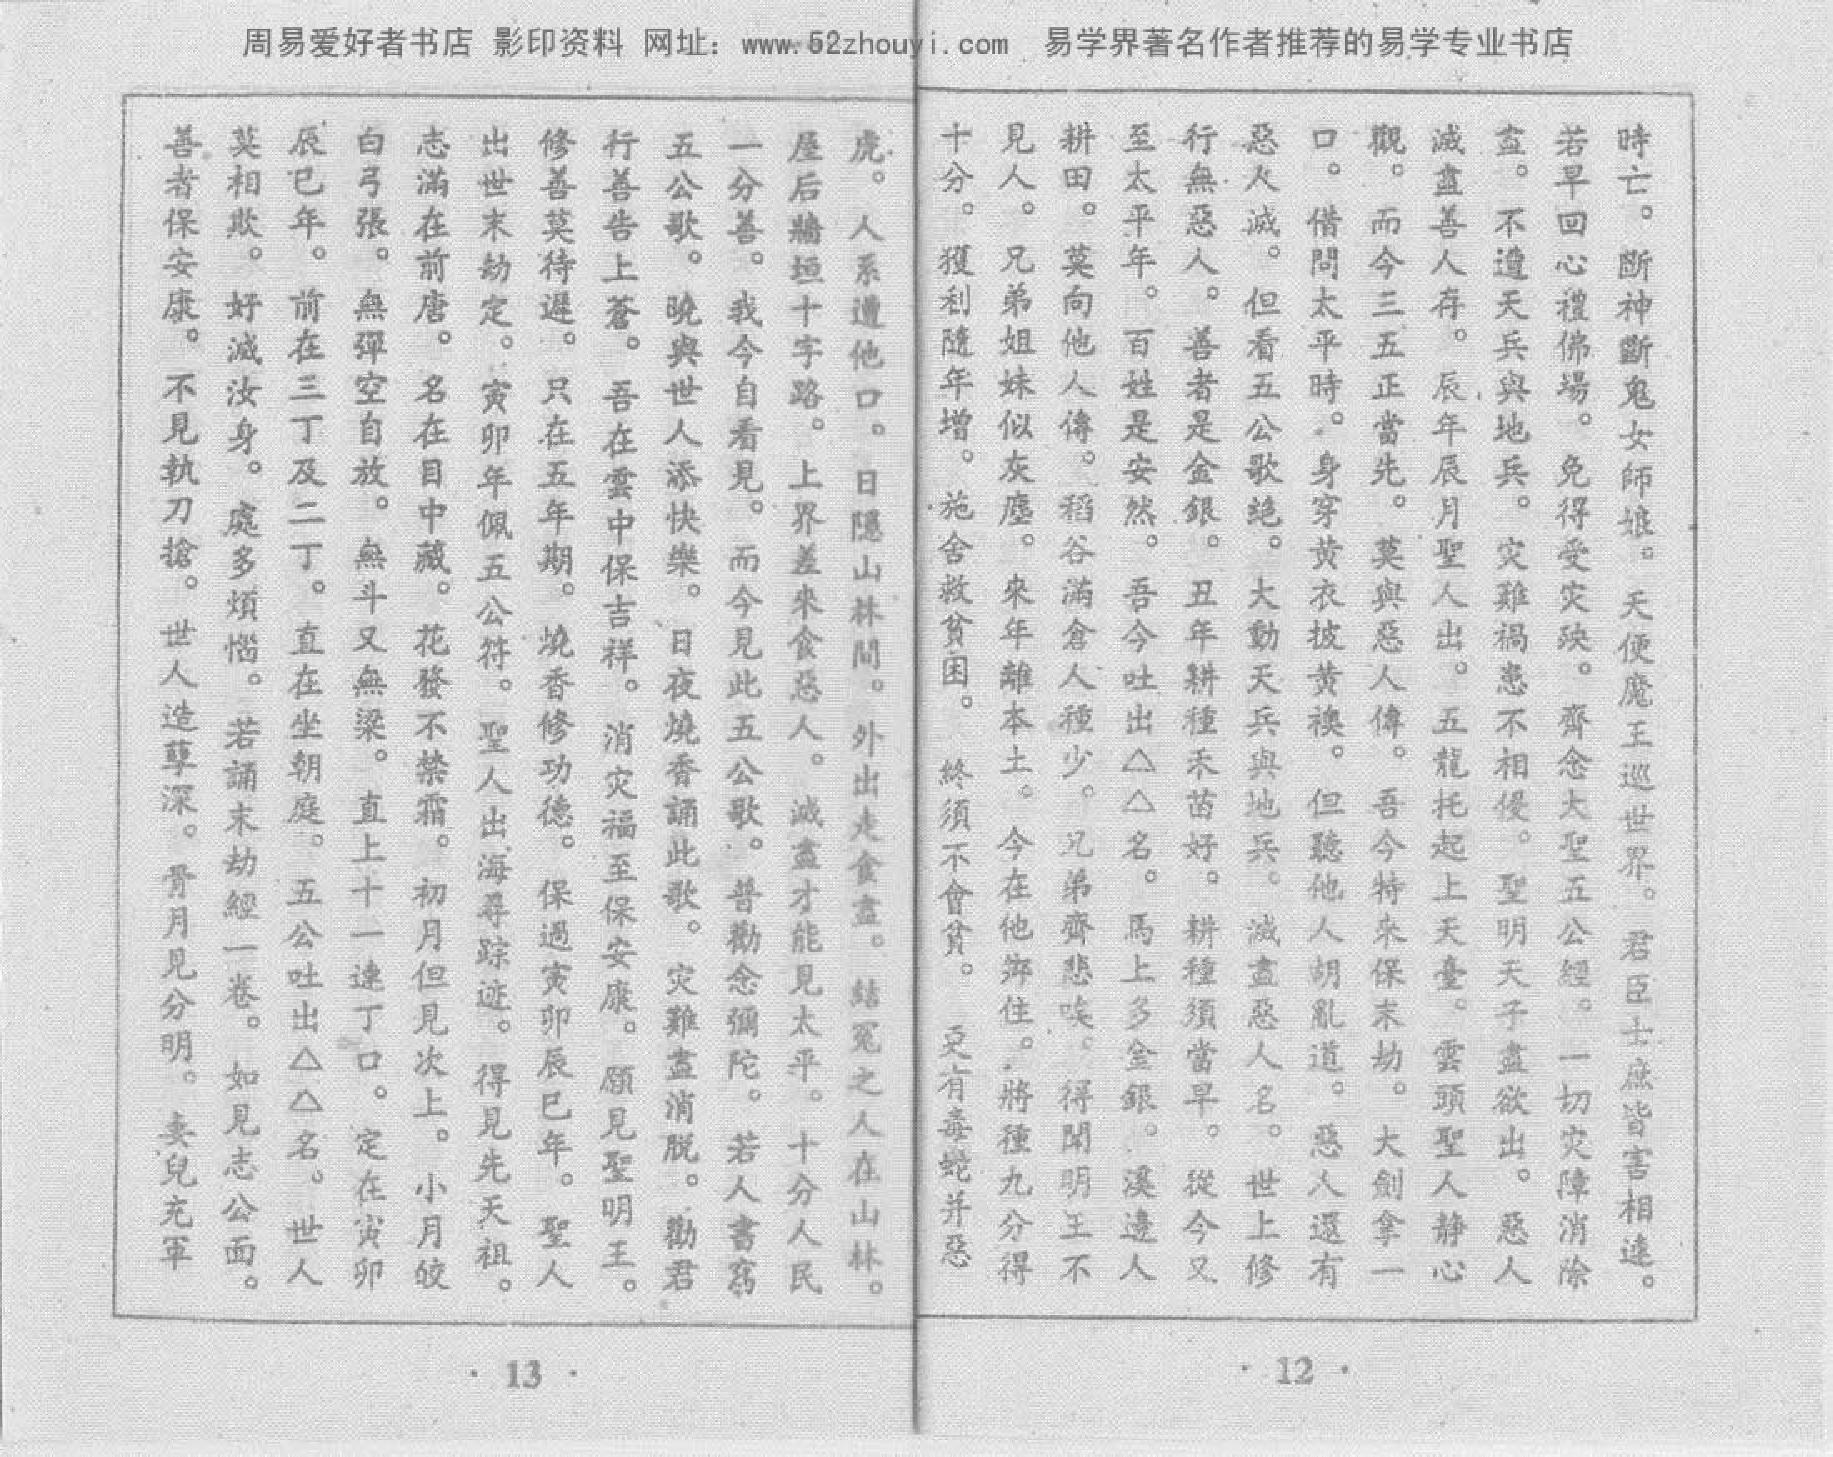 周易爱好者书店 影印资料 网址：www.52zhouyi.com 易学界著名作者推荐的易学专业书店
時亡。斷神斷鬼女師娘。天使魔王巡世界。君臣士庶皆害相連。
若早回心禮佛場。免得受灾殃。齊念大聖五公經。一切灾障消除
盡。不遭天兵與地兵。灾難禍患不相侵。聖明天子盡欲出。惡人
滅盡善人存。辰年辰月聖人出。五龍托起上天臺。雲頭聖人静心
觀。而今三五正當先。莫與惡人傳。吾今特來保末劫。大劍拿一
口。借問太平時。身穿黄衣披黄襖。但聽他人胡亂道。惡人還有
惡火滅。但看五公歌絶。大動天兵與地兵。滅盡惡人名。世上修
行無惡人。善者是金銀。丑年耕種禾苗好。耕種須當早。從今又
至太平年。百姓是安然。吾今吐出△△名。馬上多金銀。溪邊人
耕田。莫向他人傳。稻谷滿倉人種少。兄弟齊悲唉。得聞明王不
見人。兄弟姐妹似灰塵。來年離本土。今在他鄉住。將種九分得
十分。獲利隨年增。施舍救貧困。終須不會貧。更有毒蛇并惡
· 12 ·
虎。人系遭他口。日隱山林間。外出走食盡。結冤之人在山林。
屋后牆垣十字路。上界差來食惡人。滅盡才能見太平。十分人民
一分善。我今自看見。而今見此五公歌。普勸念彌陀。若人書寫
五公歌。曉與世人添快樂。日夜燒香誦此歌。灾難盡消脱。勸君
行善告上蒼。吾在雲中保吉祥。消灾福至保安康。願見聖明王。
修善莫待遲。只在五年期。燒香修功德。保過寅卯辰巳年。聖人
出世末劫定。寅卯年佩五公符。聖人出海尋踪迹。得見先天祖。
志滿在前唐。名在目中藏。花發不禁霜。初月但見次上。小月皎
白弓張。無彈空自放。無斗又無梁。直上十一連丁口。定在寅卯
辰巳年。前在三丁及二丁。直在坐朝庭。五公吐出△△名。世人
莫相欺。好滅汝身。處多煩惱。若誦末劫經一卷。如見志公面。
善者保安康。不見執刀搶。世人造孽深。骨月見分明。妻兒充軍
· 13 ·